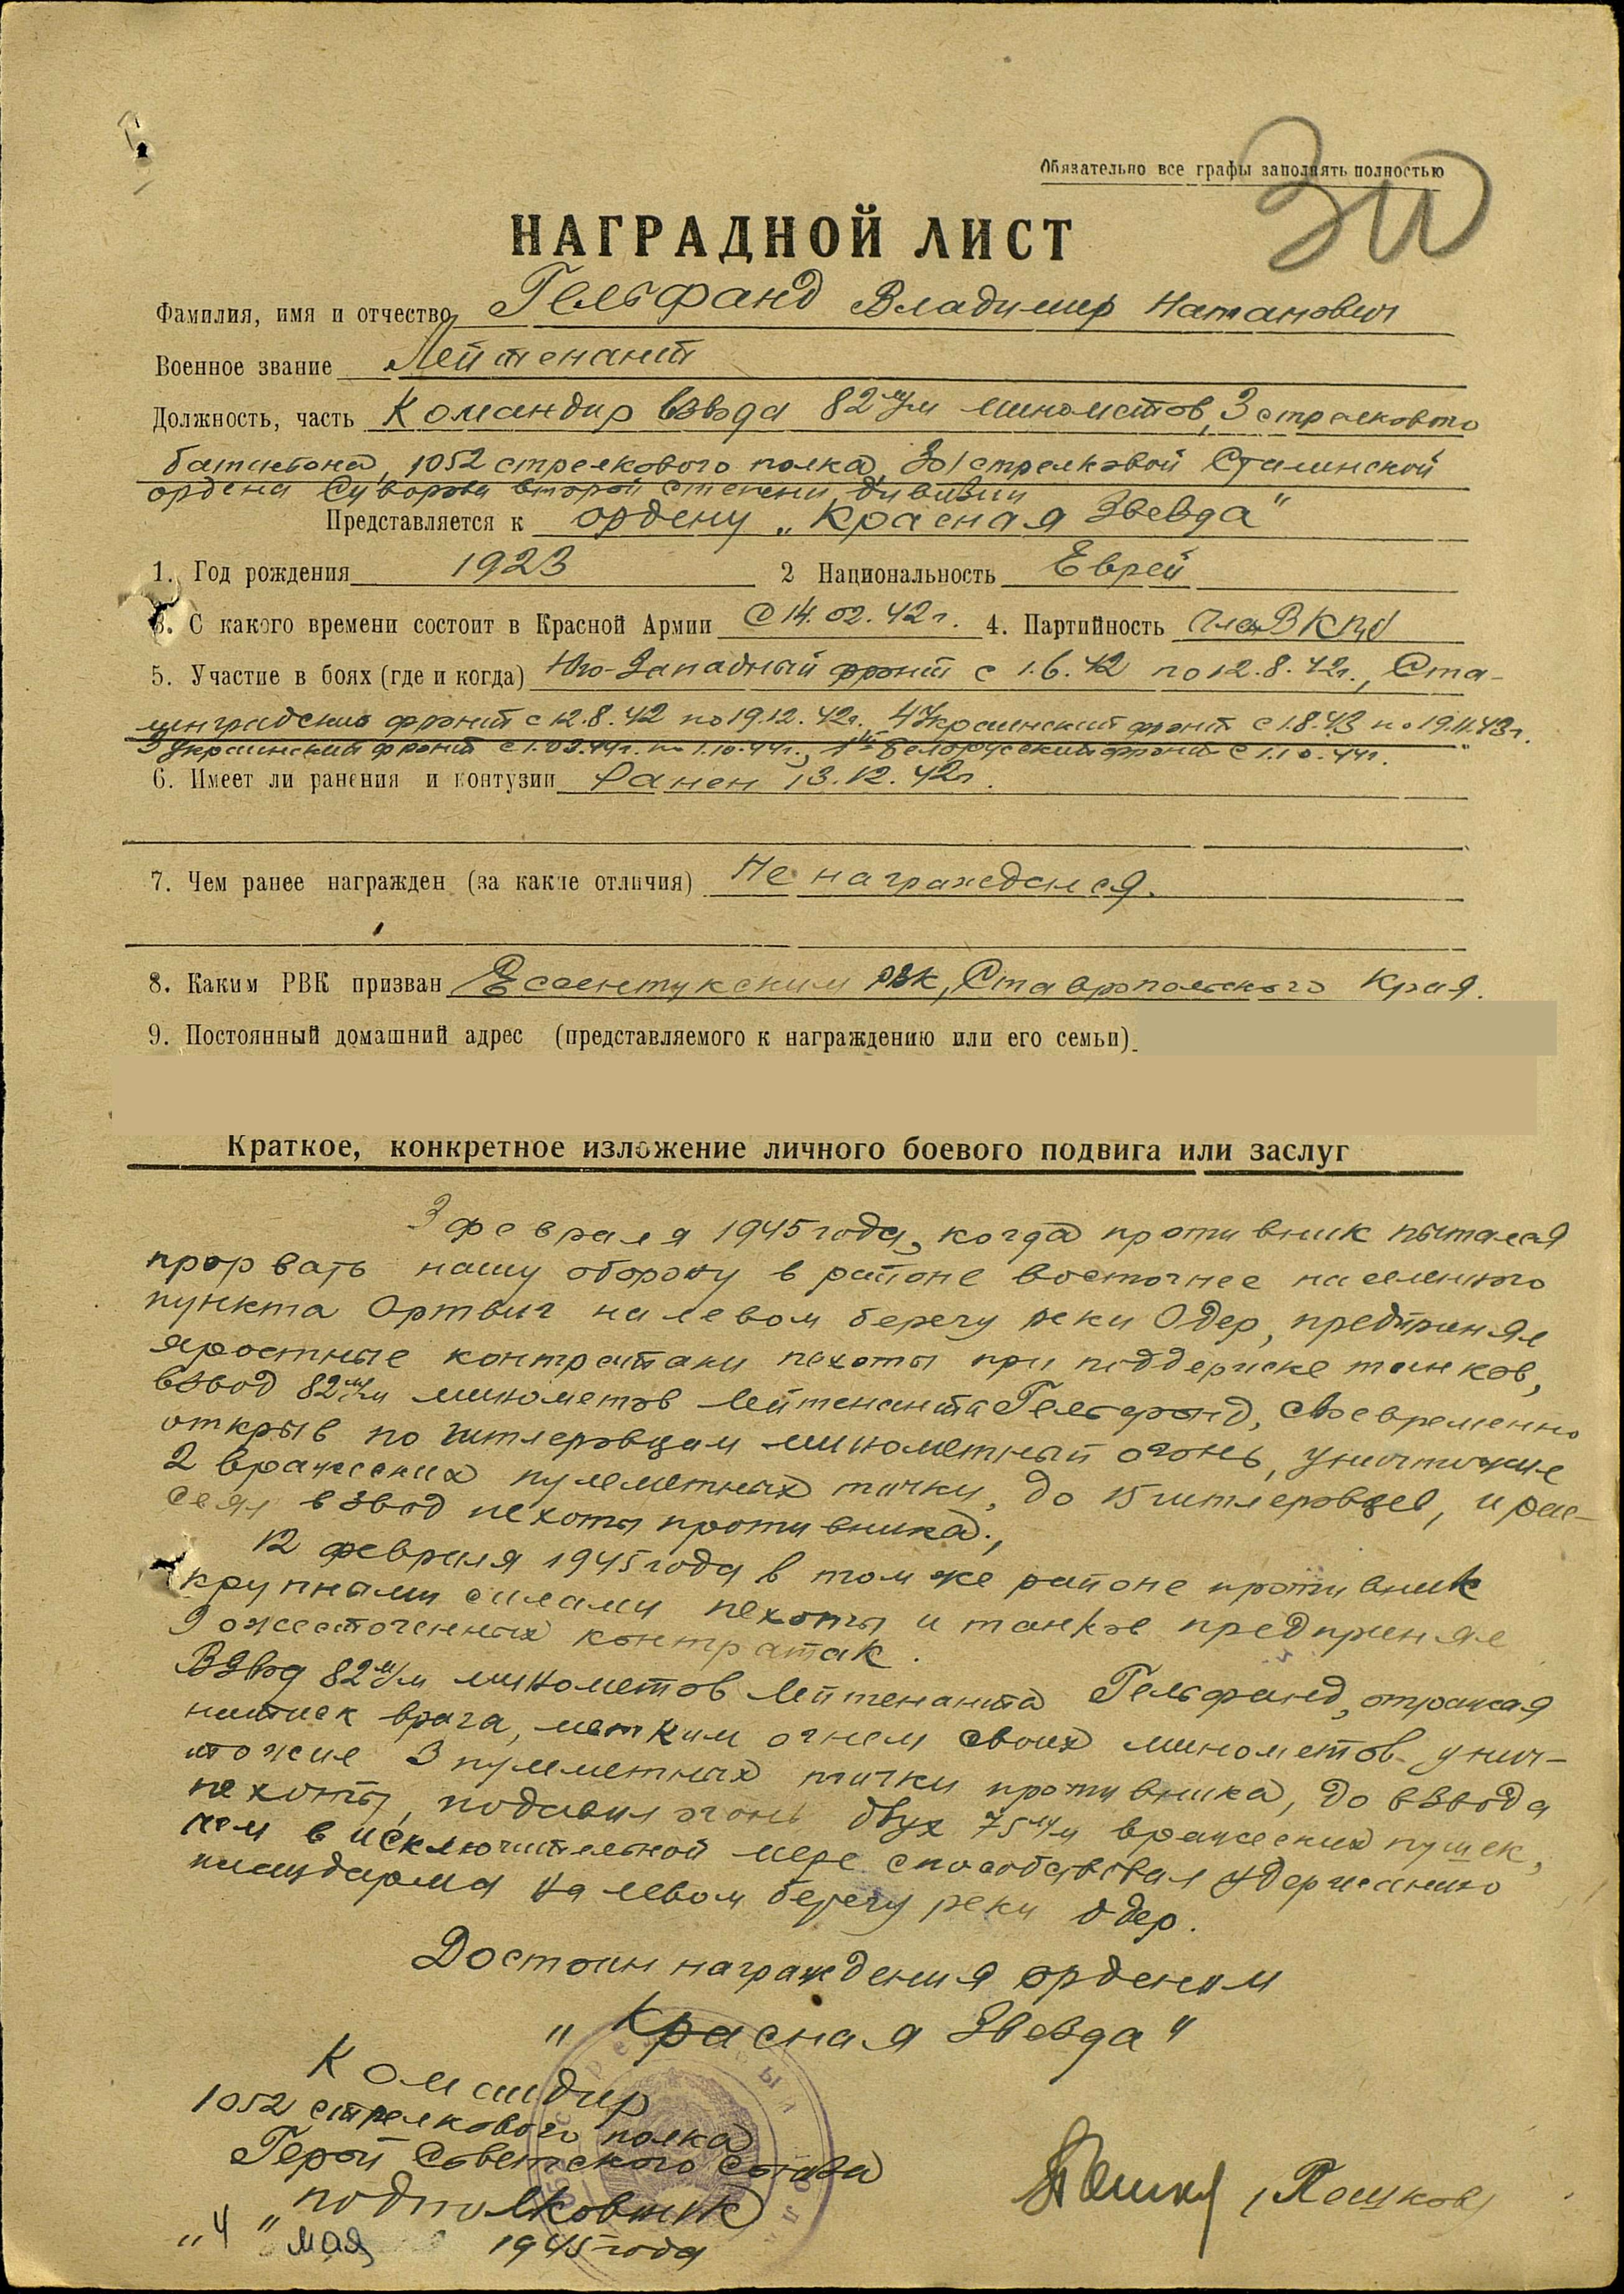 Обязательно все графы заполнять полностью
НАГРАДНОЙ ЛИСТ
Фамилия, имя и отчество Гельфанд Владимир Натанович
Военное звание Лейтенант
Должность, часть Командир взвода 82 м/м минометов, 3 стрелкового
батальона, 1052 стрелкового полка, 301 стрелковой Сталинской
ордена Суворова второй степени дивизии
Представляется к ордену „Красная Звезда"
1. Год рождения 1923 2 Национальность Еврей
3. С какого времени состоит в Красной Армии С 14.02.42 г. 4. Партийность Член ВКПб
5. Участие в боях (где и когда) Юго-Западный фронт с 1.6.42 по 12.8.42г., Ста-
линградский фронт с 12.8.42 по 19.12.42г., 4 Украинский фронт с 1.8.43 по 19.11.43г.
3 Украинский фронт с 1.03.44г. по 1.10.44г., 1й Белорусский фронт с 1.10.44г.
6. Имеет ли ранения и контузии Ранен 13.12.42г.
7. Чем ранее награжден (за какие отличия) Не награждался.
8. Каким РВК призван Ессентукским РВК, Ставропольского края.
9. Постоянный домашний адрес (представляемого к награждению или его семьи)
Краткое, конкретное изложение личного боевого подвига или заслуг
3 февраля 1945 года, когда противник пытался
прорвать нашу оборону в районе восточнее населенного
пункта Ортвиг на левом берегу реки Одер, предпринял
яростные контратаки пехоты при поддержке танков,
взвод 82 м/м минометов лейтенанта Гельфанд, своевременно
открыв по гитлеровцам минометный огонь, уничтожил
2 вражеских пулеметных точки, до 15 гитлеровцев, и рас-
сеял взвод пехоты противника.,
12 февраля 1945 года в том же районе противник
крупными силами пехоты и танков предпринял
9 ожесточенных контратак.
Взвод 82 м/м минометов лейтенанта Гельфанд, отражая
натиск врага, метким огнем своих минометов унич-
тожил 3 пулеметных точки противника, до взвода
пехоты, подавил огонь двух 75 м/м вражеских пушек,
чем в исключительной мере способствовал удержанию
плацдарма на левом берегу реки Одер.
Достоин награждения орденом
„Красная Звезда"
Командир
1052 стрелкового полка
Герой Советского Союза
подполковник (Пешков)
„4" мая 1945 года